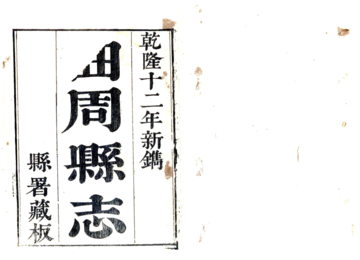 乾隆十二年新鐫
曲周縣志
縣署藏板